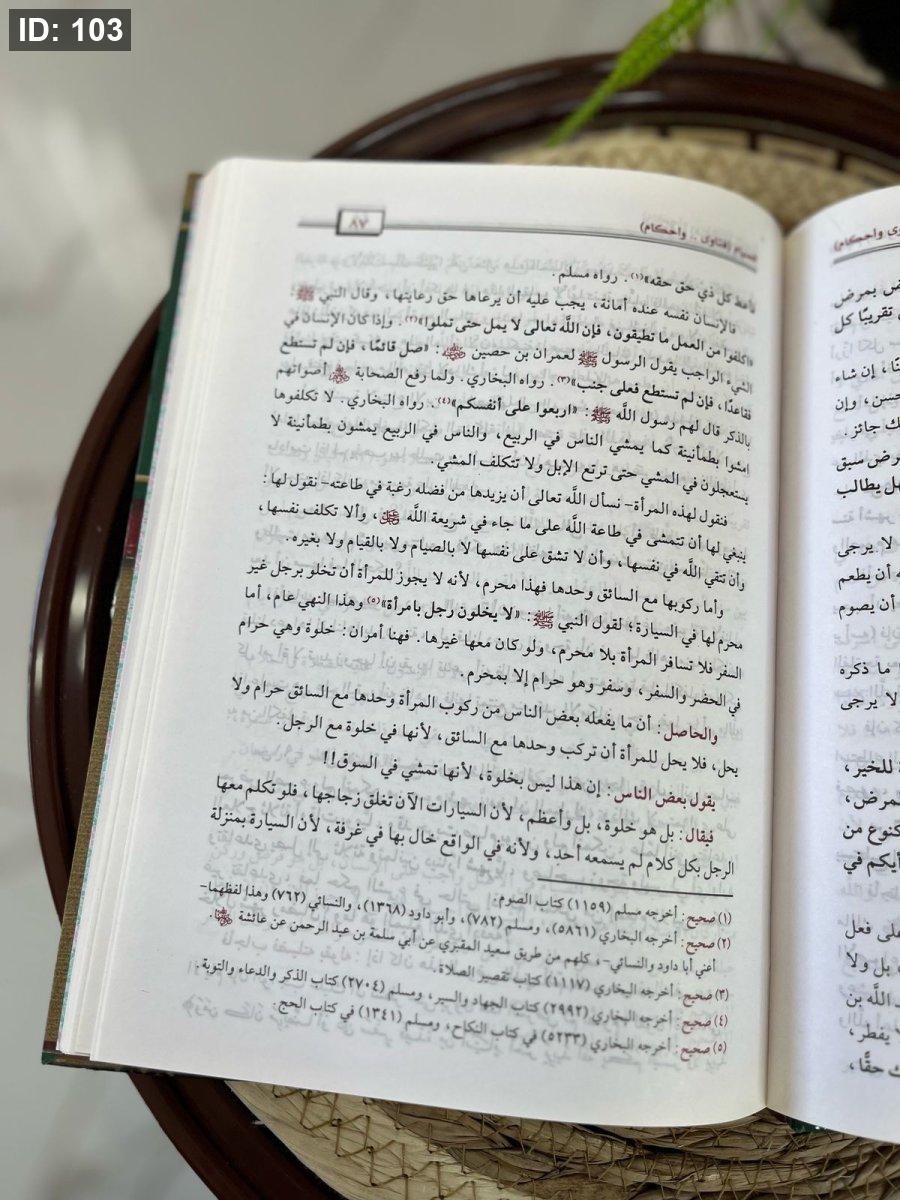 ID: 103
الصيام (فتاوى .. وأحكام)
٨٧
فأعط كل ذي حق حقه»(١) . رواه مسلم .
فالإنسان نفسه عنده أمانة، يجب عليه أن يرعاها حق رعايتها، وقال النبي ﷺ:
«اكلفوا من العمل ما تطيقون، فإن اللَّه تعالى لا يمل حتى تملوا»(٢) . وإذا كان الإنسان في
الشيء الواجب يقول الرسول ﷺ لعمران بن حصين : «صل قائمًا، فإن لم تستطع
فقاعدًا، فإن لم تستطع فعلى جنب»(٣) . رواه البخاري . ولما رفع الصحابة أصواتهم
بالذكر قال لهم رسول اللَّه ﷺ : «اربعوا على أنفسكم»(٤). رواه البخاري . لا تكلفوها
امشوا بطمأنينة كما يمشي الناس في الربيع، والناس في الربيع يمشون بطمأنينة لا
يستعجلون في المشي حتى ترتع الإبل ولا تتكلف المشي.
فنقول لهذه المرأة- نسأل اللَّه تعالى أن يزيدها من فضله رغبة في طاعته- نقول لها :
ينبغي لها أن تتمشى في طاعة اللَّه على ما جاء في شريعة اللَّه ، وألا تكلف نفسها،
وأن تتقي اللَّه في نفسها، وأن لا تشق على نفسها لا بالصيام ولا بالقيام ولا بغيره.
وأما ركوبها مع السائق وحدها فهذا محرم، لأنه لا يجوز للمرأة أن تخلو برجل غير
محرم لها في السيارة؛ لقول النبي ﷺ : «لا يخلون رجل بامرأة»(٥) وهذا النهي عام، أما
السفر فلا تسافر المرأة بلا محرم، ولو كان معها غيرها . فهنا أمران : خلوة وهي حرام
في الحضر والسفر، وسفر وهو حرام إلا بمحرم.
والحاصل : أن ما يفعله بعض الناس من ركوب المرأة وحدها مع السائق حرام ولا
يحل، فلا يحل للمرأة أن تركب وحدها مع السائق، لأنها في خلوة مع الرجل.
يقول بعض الناس : إن هذا ليس بخلوة، لأنها تمشي في السوق!!
فيقال : بل هو خلوة، بل وأعظم، لأن السيارات الآن تغلق زجاجها، فلو تكلم معها
الرجل بكل كلام لم يسمعه أحد، ولأنه في الواقع خال بها في غرفة، لأن السيارة بمنزلة
(١) صحيح : أخرجه مسلم (١١٥٩) كتاب الصوم.
(٢) صحيح : أخرجه البخاري (٥٨٦١)، ومسلم (٧٨٢)، وأبو داود (١٣٦٨)، والنسائي (٧٦٢) وهذا لفظهما-
أعني أبا داود والنسائي-، كلهم من طريق سعيد المقبري عن أبي سلمة بن عبد الرحمن عن عائشة .
(٣) صحيح : أخرجه البخاري (١١١٧) كتاب تقصير الصلاة.
(٤) صحيح : أخرجه البخاري (٢٩٩٢) كتاب الجهاد والسير، ومسلم (٢٧٠٤) كتاب الذكر والدعاء والتوبة.
(٥) صحيح : أخرجه البخاري (٥٢٣٣) في كتاب النكاح، ومسلم (١٣٤١) في كتاب الحج.
وأحكام)
بمرض
تقريبًا كل
إن شاء
وإن
جائز .
سبق
يطالب
لا يرجى
أن يطعم
أن يصوم
ما ذكره
لا يرجى
للخير،
المرض،
كنوع من
رأيكم في
على فعل
بل ولا
اللَّه بن
يفطر،
حقًّا،